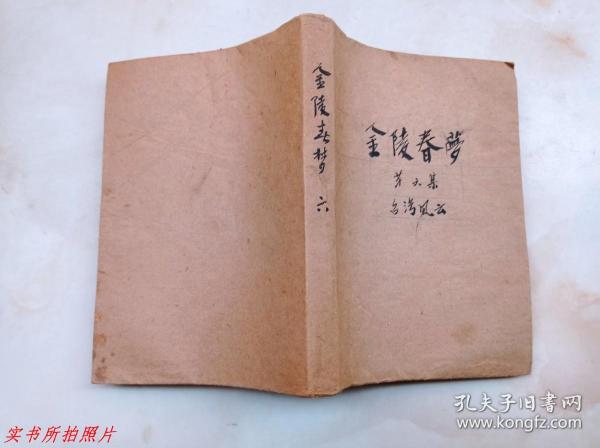 金陵春梦 六
金陵春夢
第六集
台湾风云
实书所拍照片
孔夫子旧书网
www.kongfz.com